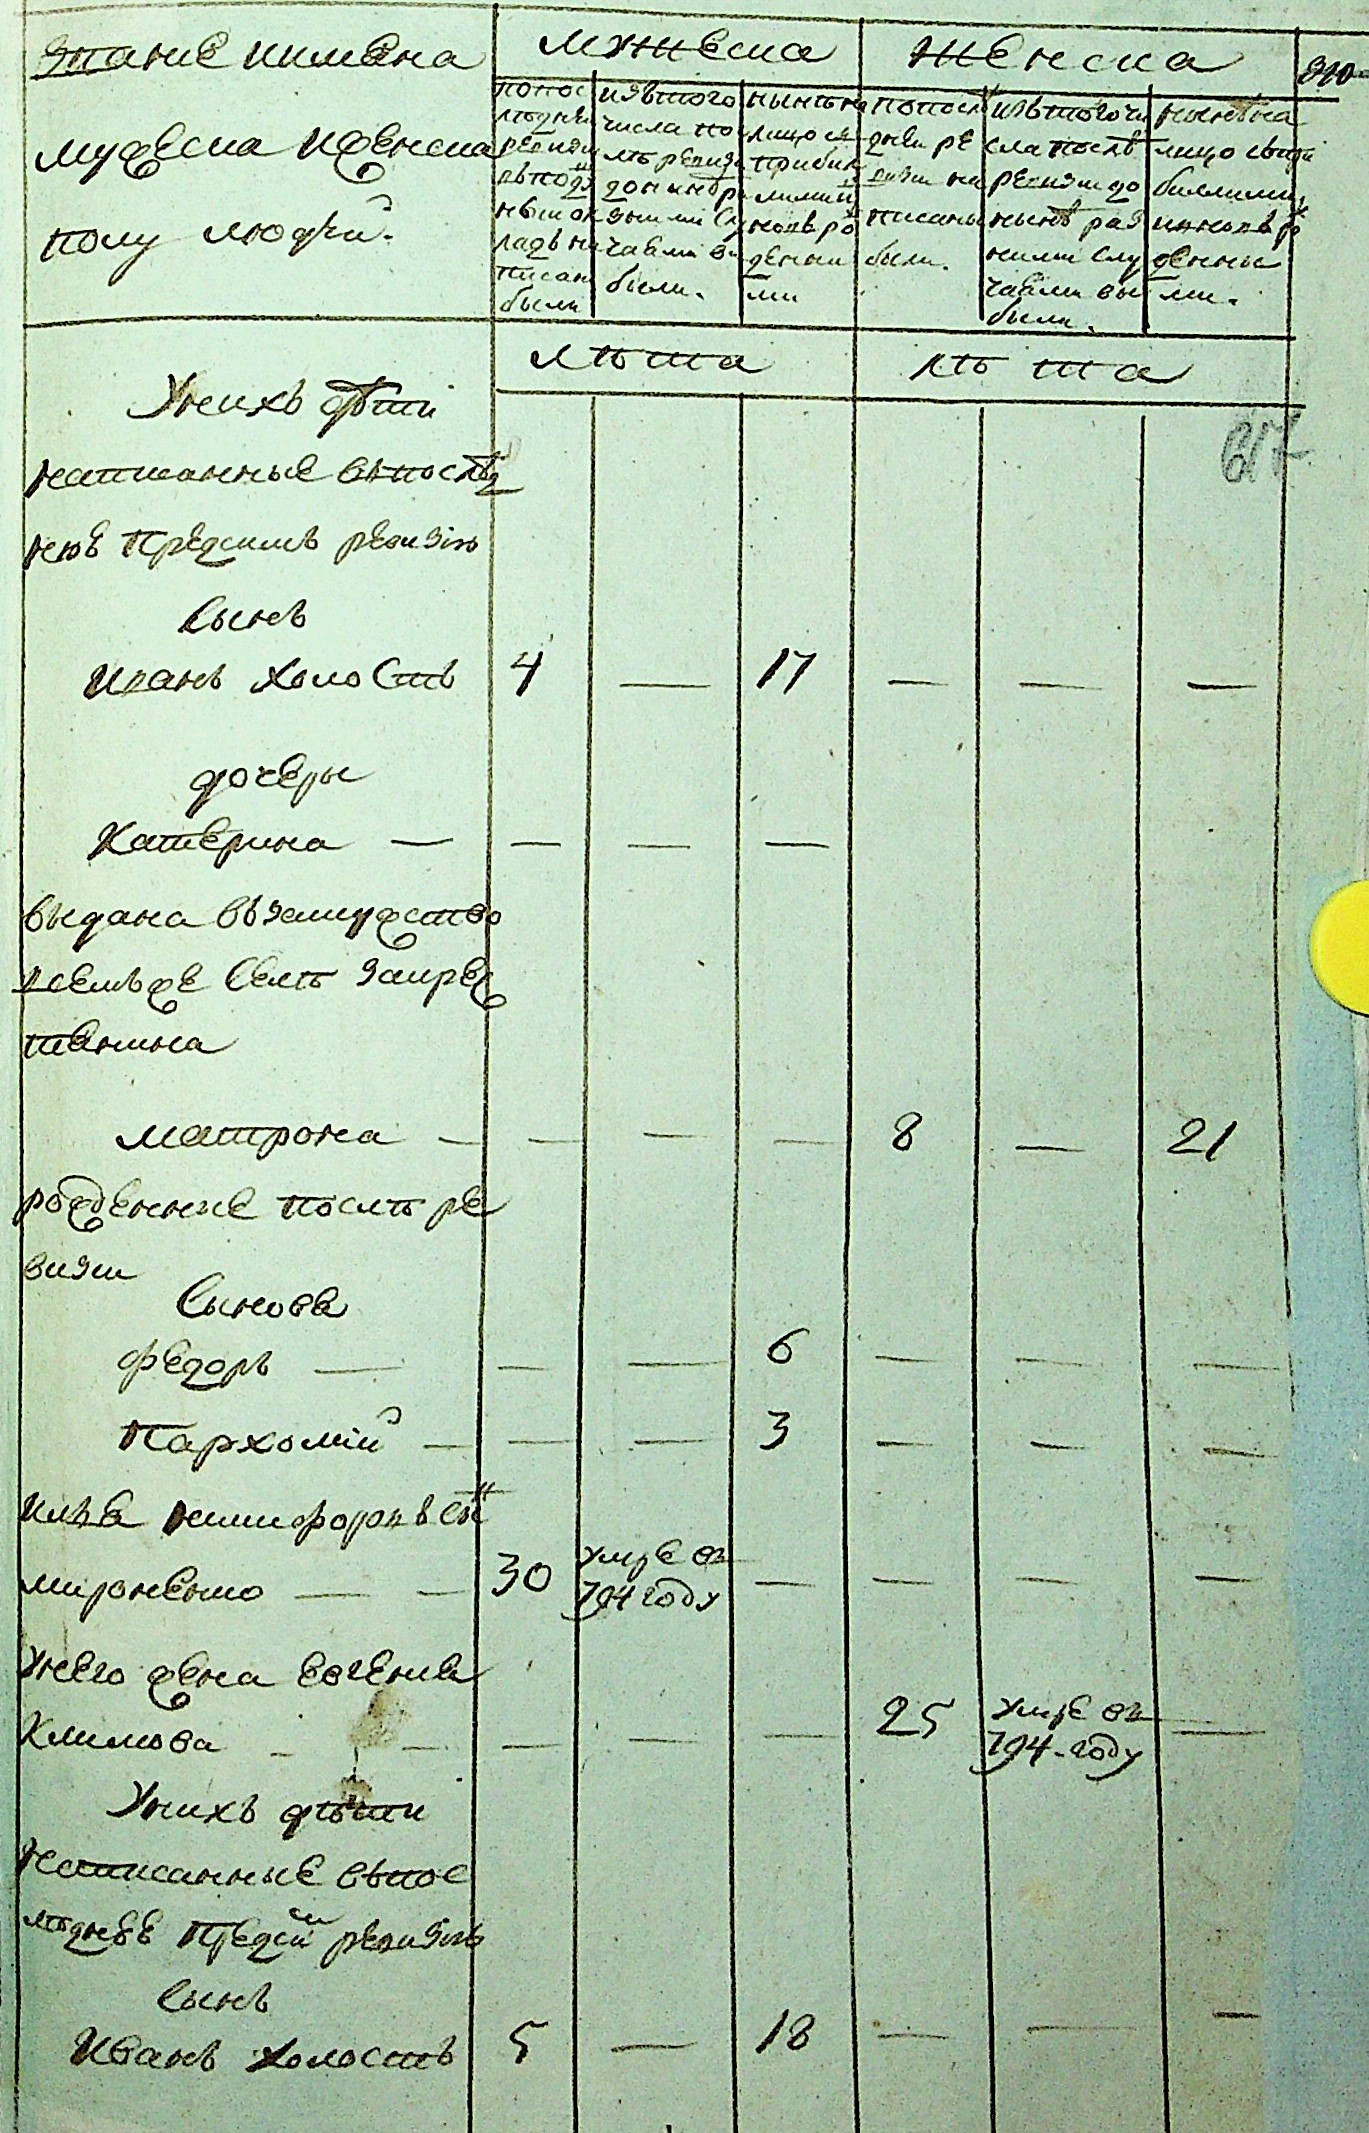 звание имена
мужеска иженска
полу людей.
мужеска
женска
попос
ледней
ревизи
вподу
шном ок
ладе на
писан
были
изтого
числа по
ле ревизи
разними слу
чаями вы
были.
ныне на
лицо
прибы
лими
новоро
денни
ми
попосле
дней ре
визи на
писаны
были.
изтого чи
сла после
ревизи до
ныне раз
ними слу
чаями вы
были.
ныне на
лицо сыпри
былими
иновор
денны
ми.
лѣта
лѣта
617
Унихъ дѣти
написанные впослѣд
нюе предсимъ ревизію
сынъ
Иванъ холостъ 4 — 17 — — —
дочеры
Катерина — — — —
выдана взамужство
селѣ
тянина
Матрона — — — — 8 — 21
рожденние послѣ ре
визи
Сынове
Федоръ — — — 6 — — —
Пархомій — — — 3 — — —
Илья Никифоровъ сы
30 умре въ 794 году — — — —
Унего жена Евгения
Климова — — — — — 25 умре въ 794 году —
Унихъ дѣти
написанные впос
лѣднее предсим ревизію
сынъ
Иванъ холостъ 5 — 18 — — —